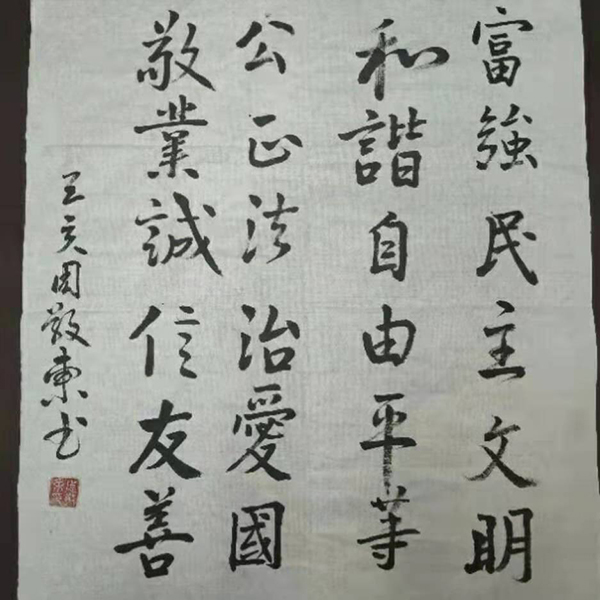 富強民主文明
和諧自由平等
公正法治愛國
敬業誠信友善
亥周東书